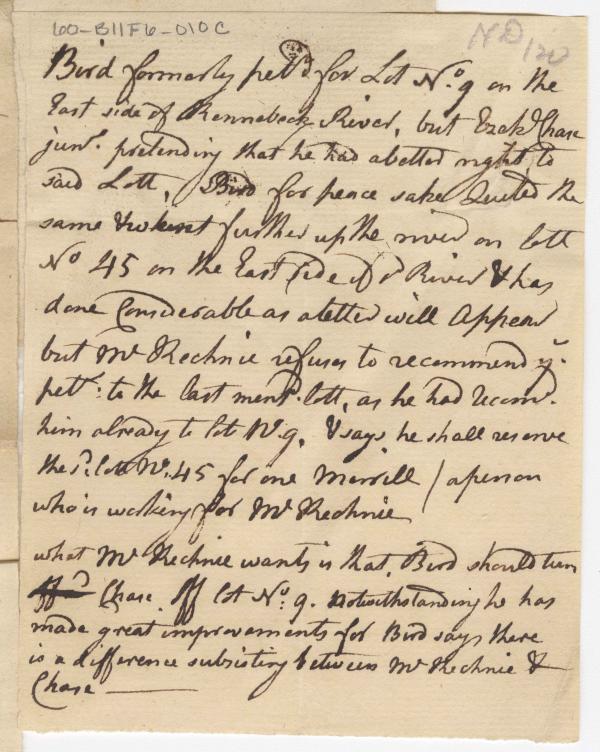 60-B11F6-010C
ND
Bird formerly pet.d for Lot No. 9 on the
East side of Kennebeck River, but Ezek.l Chase
jun.r pretending that he had a better right to
said Lott, Bird for peace sake Quited the
same & went further up the river on lott
No 45 on the East side of s.d River & has
done Considerable as a letter will Appear
but Mr Kechnie refuses to recommend y.e
pet.r to the last ment.d lott, as he had recom.d
him already to lot No. 9, & says he shall reserve
the s.d lott No. 45 for one Merrill / a person
who is working for Mr Kechnie
what Mr Kechnie wants is that, Bird should turn
Chase off lot No. 9. notwithstanding he has
made great improvements for Bird says there
is a difference subsisting between Mr Kechnie &
Chase